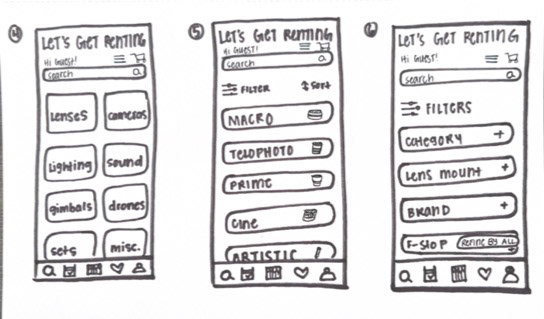 4
LET'S GET RENTING
Hi Guest!
search
Lenses
cameras
Lighting
sound
gimbals
drones
sets
misc.
5
LET'S GET RENTING
Hi Guest!
search
FILTER
SORT
MACRO
TELOPHOTO
PRIME
Cine
ARTISTIC
6
LET'S GET RENTING
Hi Guest!
search
FILTERS
CATEGORY +
Lens mount +
BRAND +
F-STOP
REFINE BY ALL
+